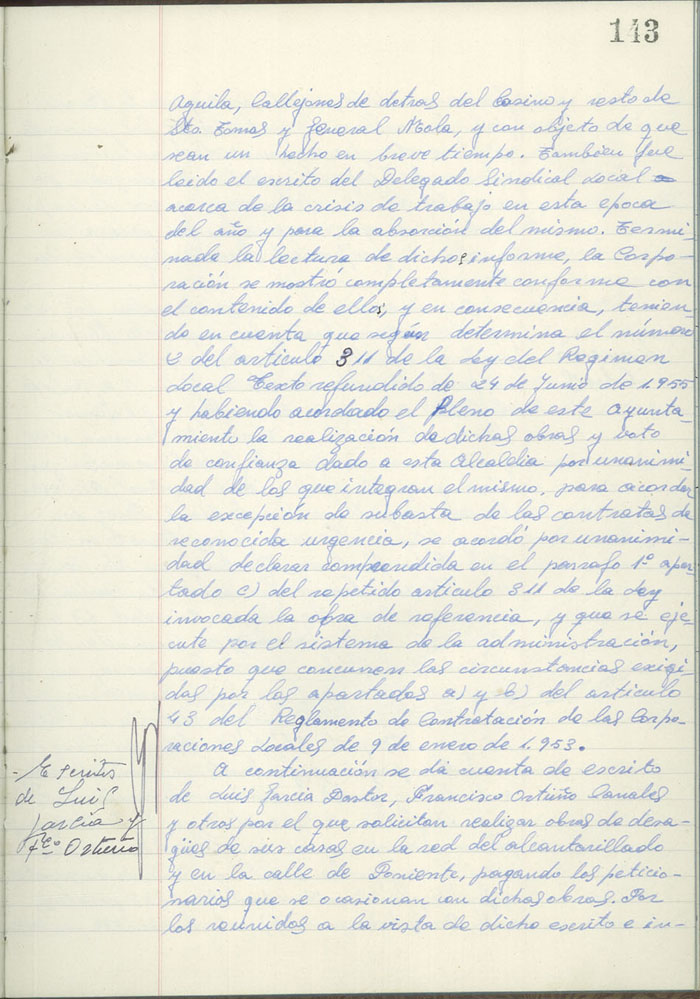 143
Aguila, Callejones de detras del Casino y resto de
Sto. Tomas y General Mola, y con objeto de que
sean un hecho en breve tiempo. Tambien fue
leido el escrito del Delegado Sindical Local
acerca de la crisis de trabajo en esta epoca
del año y para la absorción del mismo. Termi-
nada la lectura de dichos informe, la Corpo-
ración se mostró completamente conforme con
el contenido de ellos, y en consecuencia, tenien-
do en cuenta que según determina el número
2 del articulo 311 de la Ley del Regimen
Local Texto refundido de 24 de Junio de 1.955
y habiendo acordado el Pleno de este Ayunta-
miento la realización de dichas obras y voto
de confianza dado a esta Alcaldia por unanimi-
dad de los que integran el mismo, para acordar
la excepción de subasta de las contratas de
reconocida urgencia, se acordó por unanimi-
dad declarar comprendida en el parrafo 1º apar-
tado c) del repetido articulo 311 de la Ley
invocada la obra de referencia, y que se eje-
cute por el sistema de la administración,
puesto que concurren las circunstancias exigi-
das por los apartados a) y b) del articulo
43 del Reglamento de Contratación de las Corpo-
raciones Locales de 9 de enero de 1.953.
- Escritos
de Luis
Garcia y
Fco Ortuño
A continuación se dá cuenta de escrito
de Luis Garcia Pastor, Francisco Ortuño Canales
y otros por el que solicitan realizar obras de desa-
gües de sus casas en la red del alcantarillado
y en la calle de Poniente, pagando los peticio-
narios que se ocasionan con dichas obras. Por
los reunidos a la vista de dicho escrito e in-